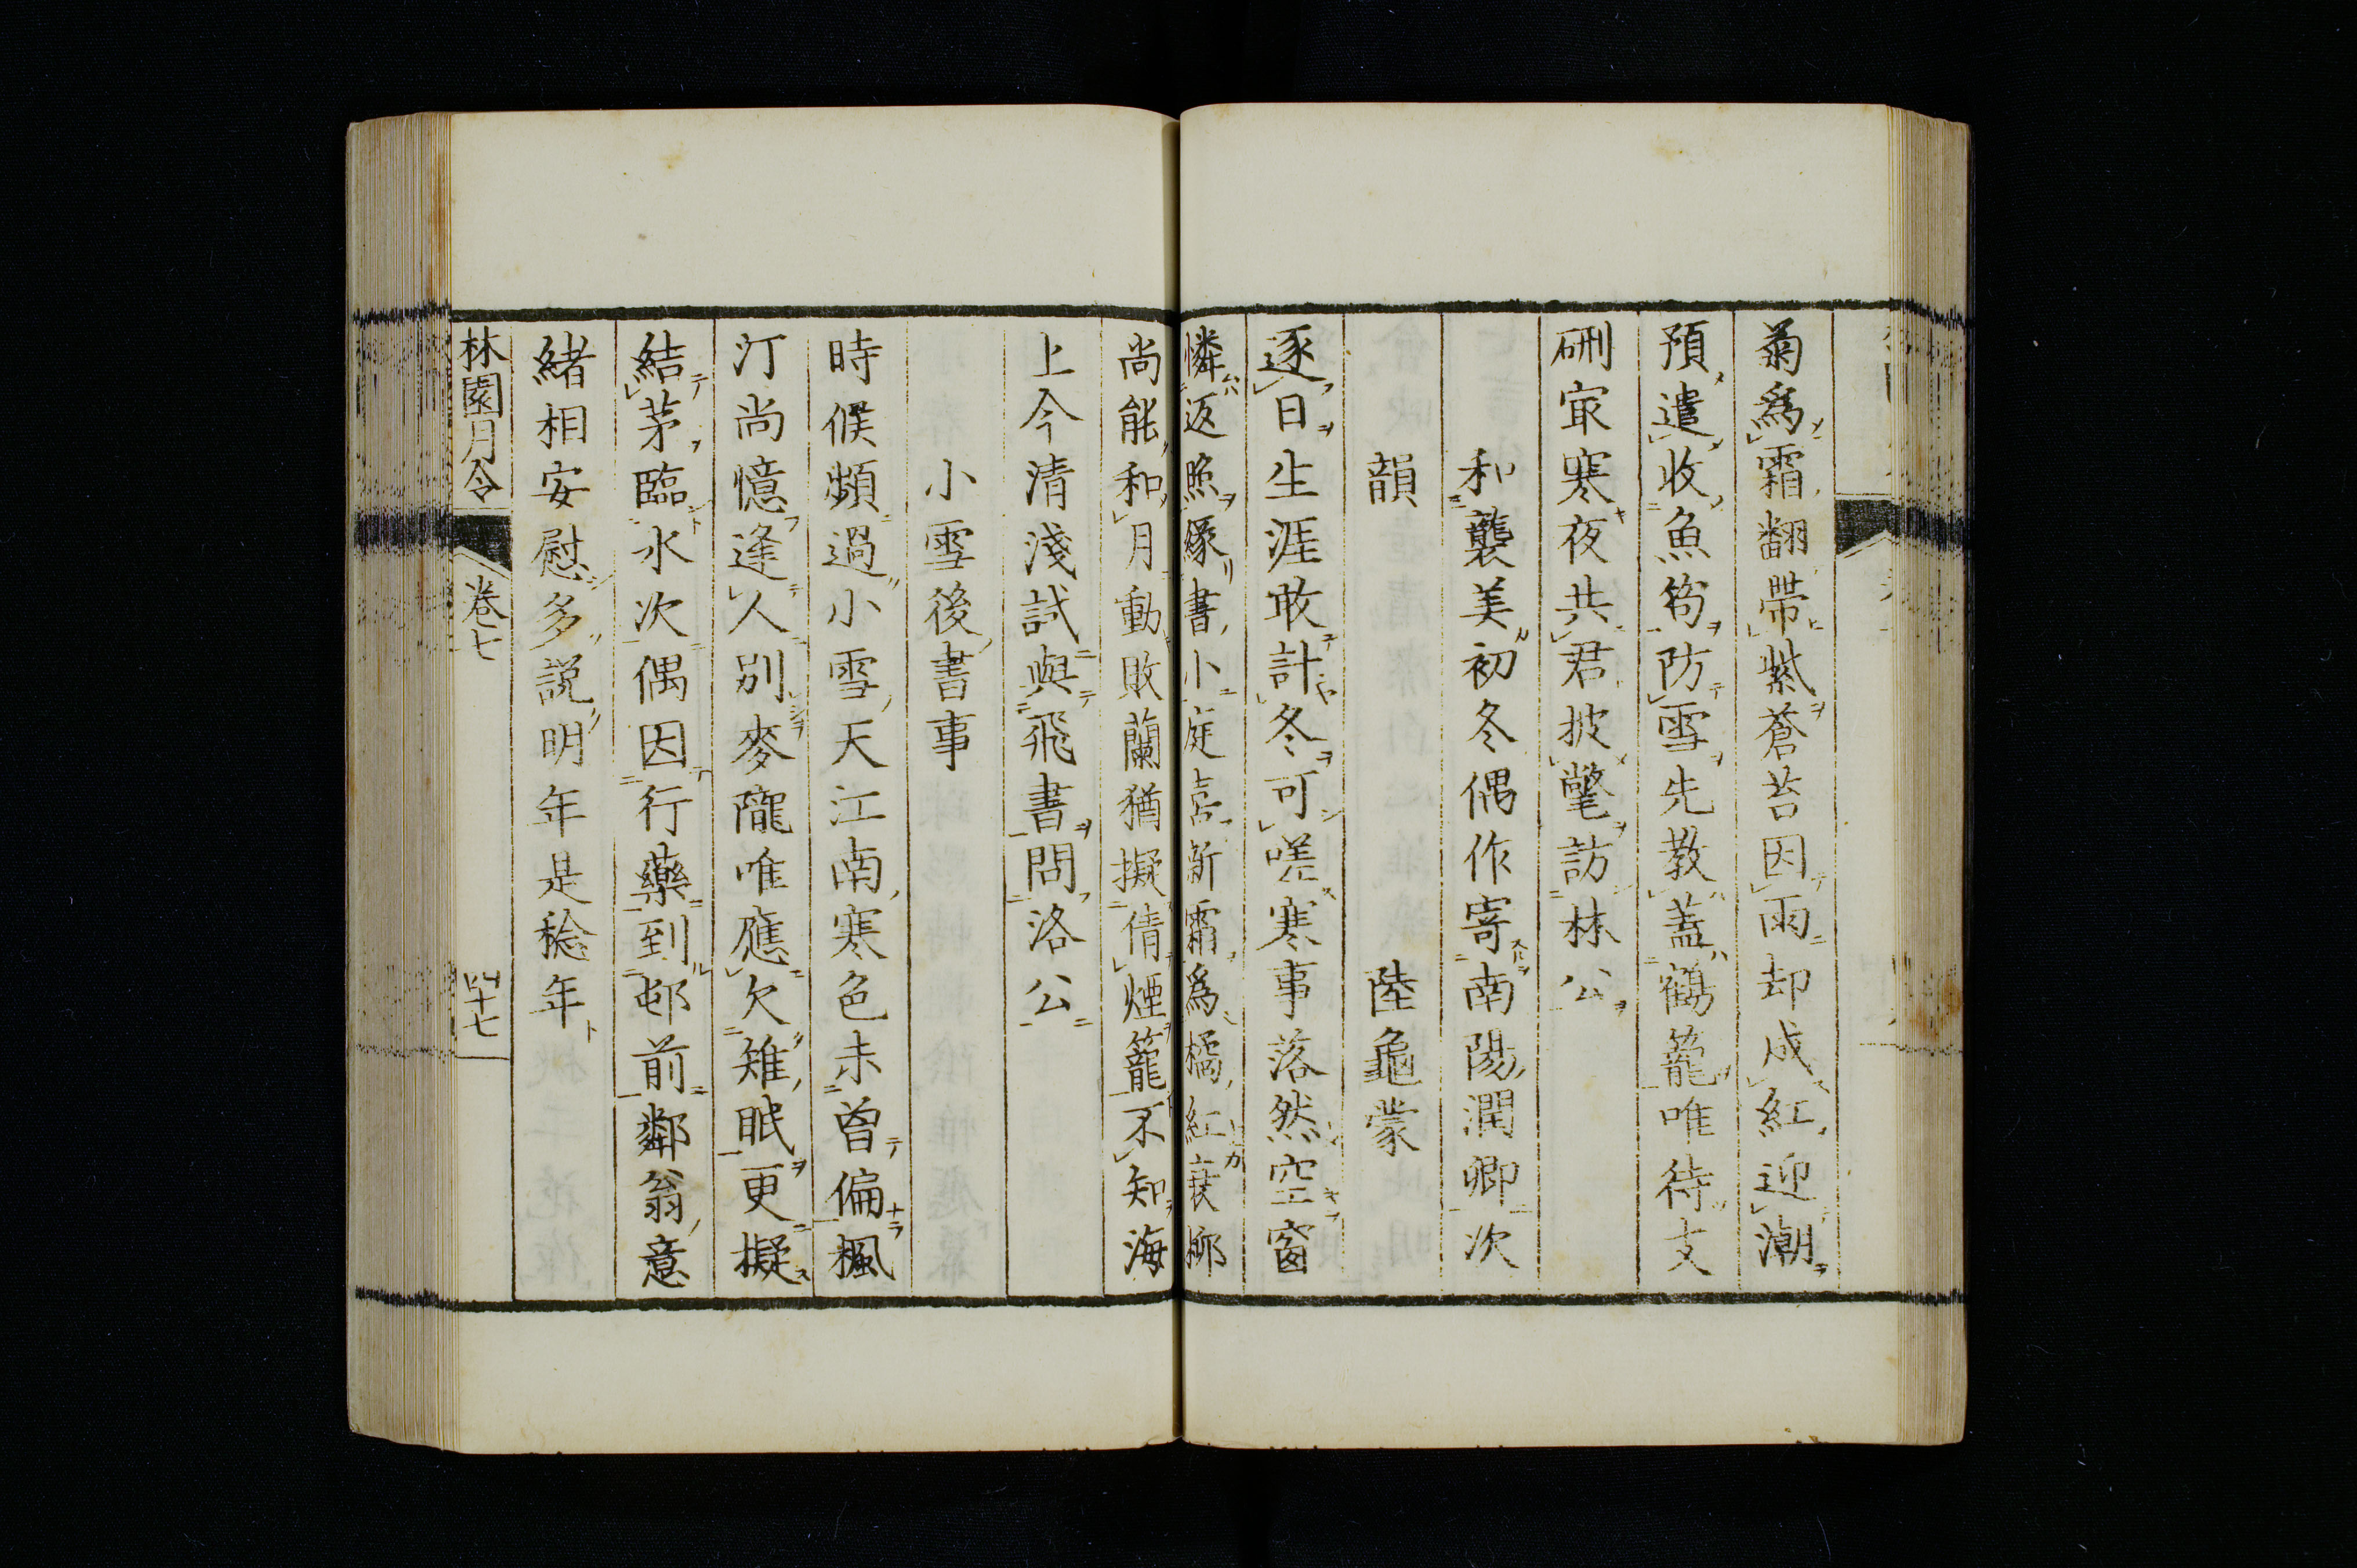 菊爲霜翻帶紫蒼苔因雨却成紅迎潮
預遣收魚笱防雪先教蓋鶴籠唯待支
硎㝡寒夜共君披氅訪林公
和襲美初冬偶作寄南陽潤卿次
韻　陸龜蒙
逐日生涯敢計冬可嗟寒事落然空窗
憐返照緣書小庭喜新霜爲橘紅衰柳
尚能和月動敗蘭猶擬倩煙籠不知海
上今清淺試與飛書問洛公
小雪後書事
時候頻過小雪天江南寒色未曾偏楓
汀尚憶逢人別麥隴唯應欠雉眠更擬
結茅臨水次偶因行藥到邨前鄰翁意
緒相安慰多說明年是稔年
林園月令 卷七 四十七